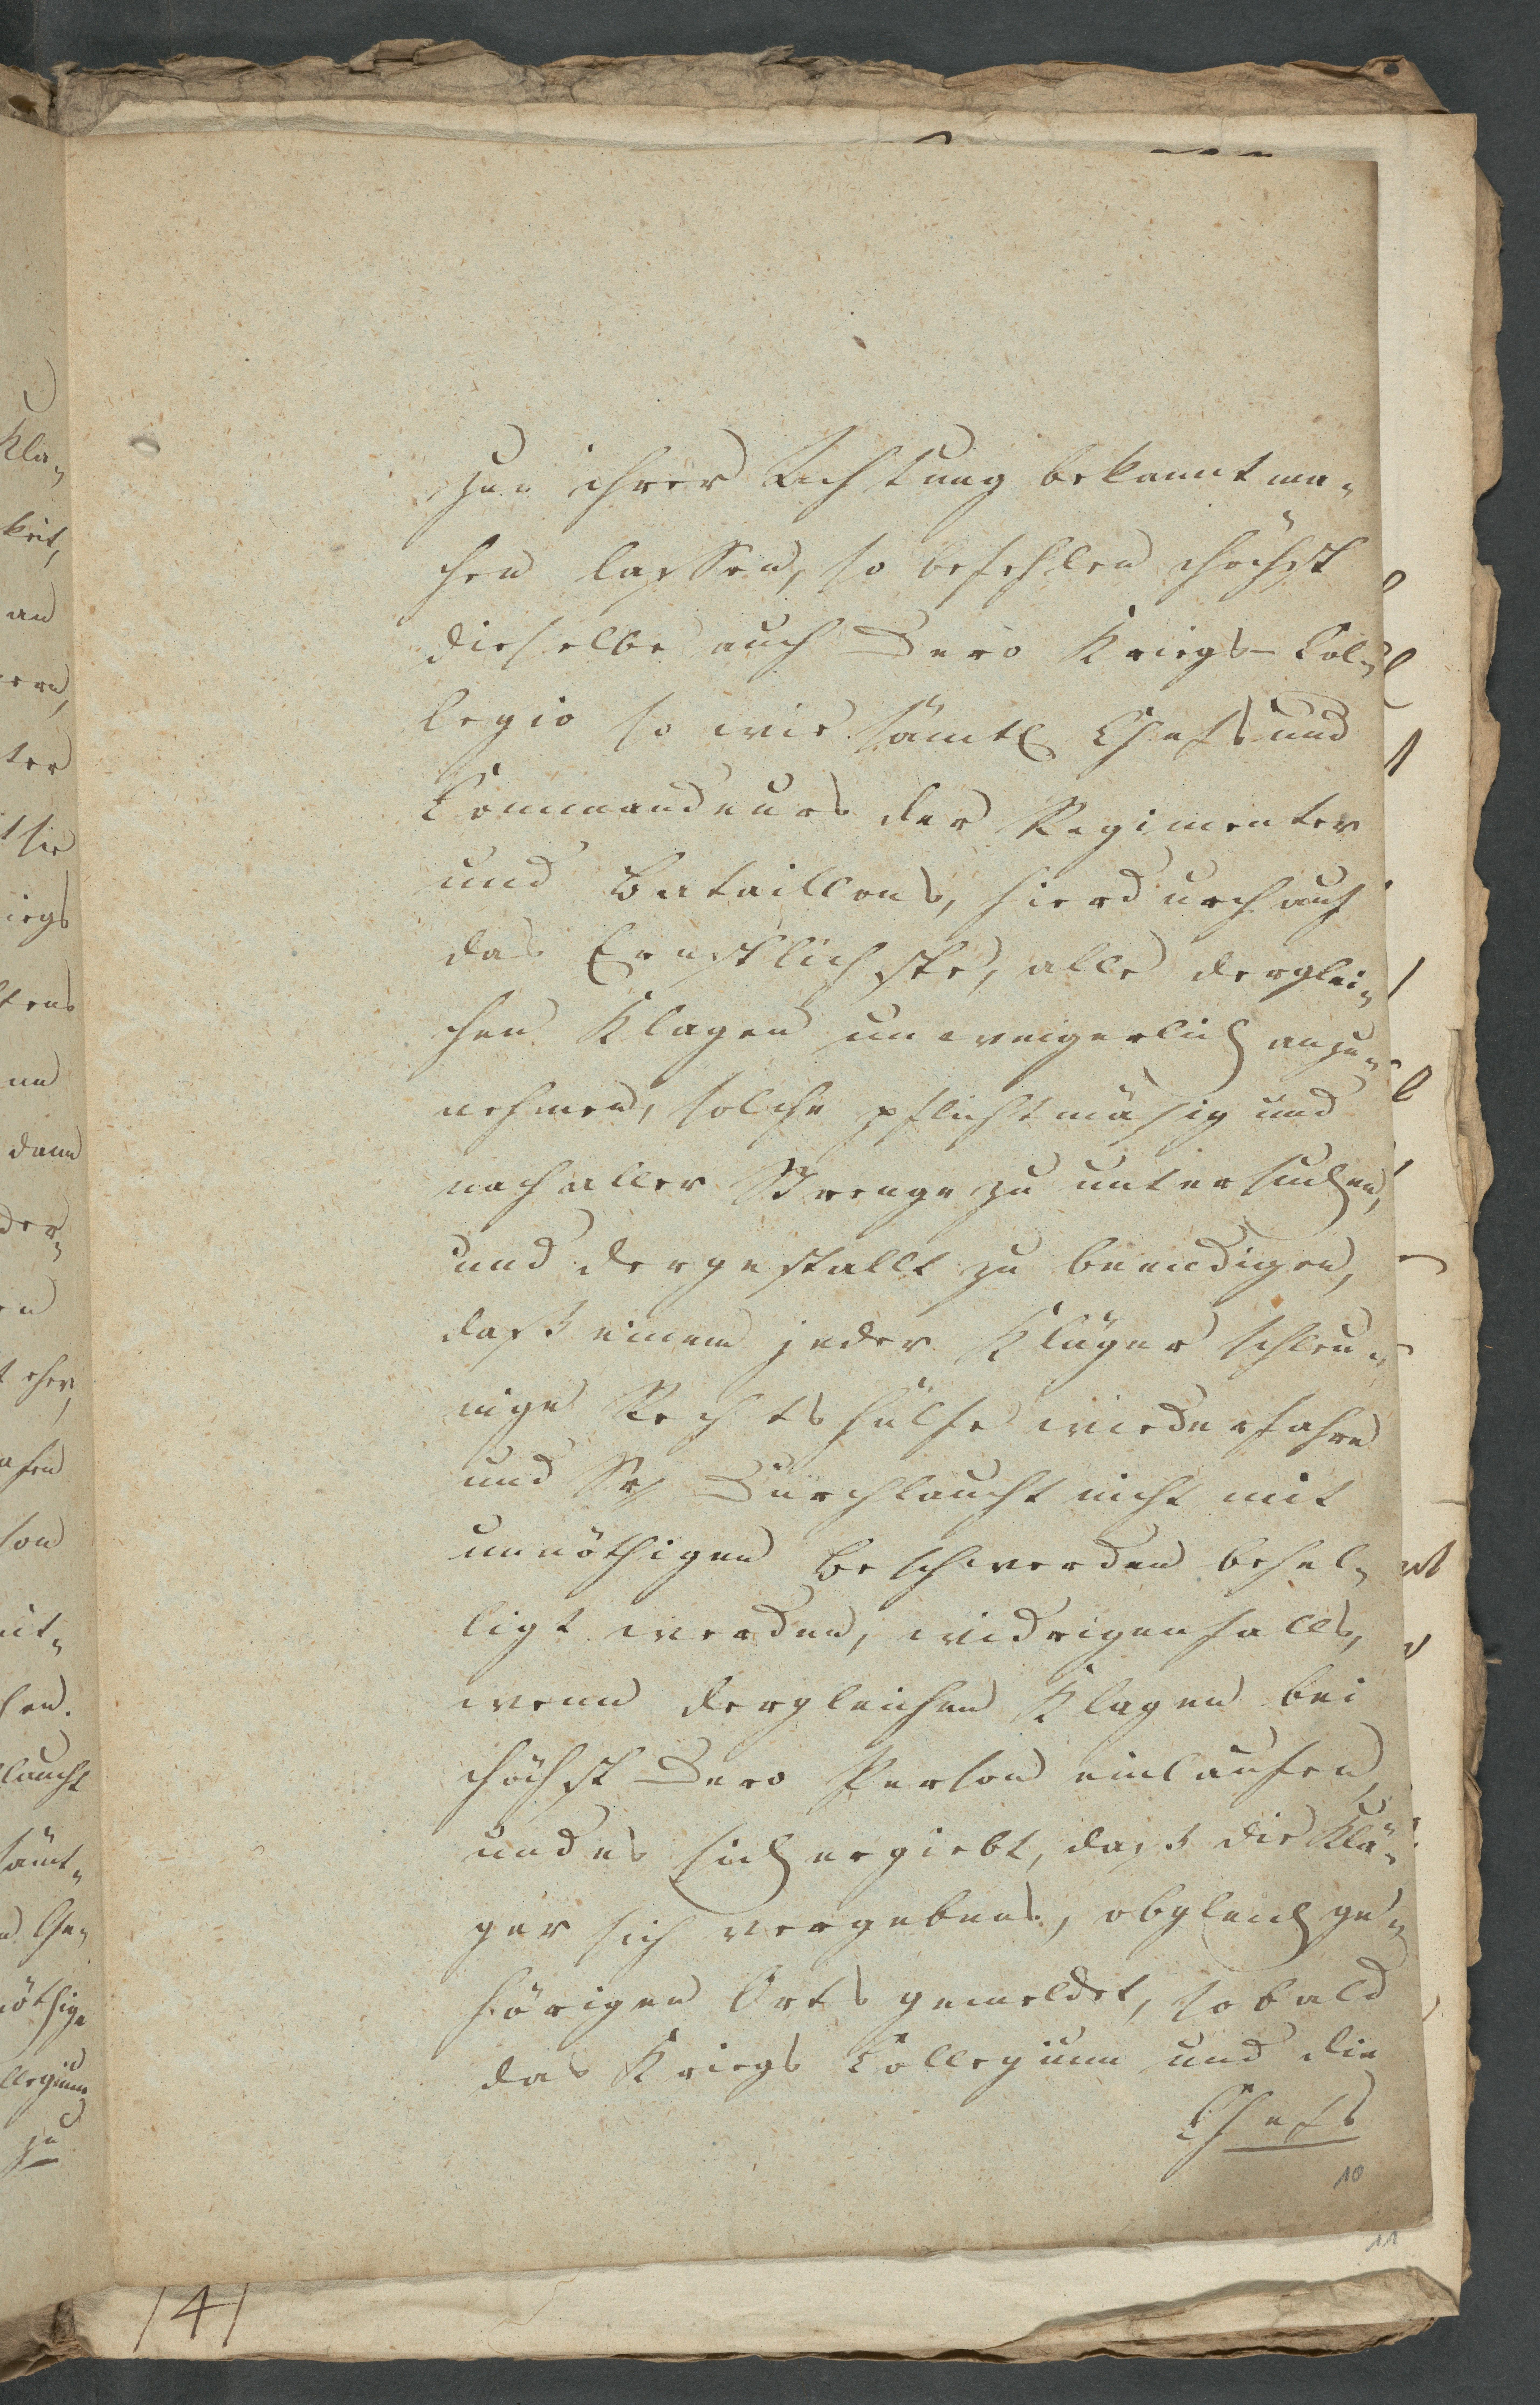 zur ihrer Achtung bekannt ma-
chen lassen, so befehlen höchst
dieselbe auch Dero Kriegs-Col-
legio so wie sämtl Chefs und
Commandeurs der Regimenter
und Bataillons, hierdurch auf
das Ernstlichste, alle derglei-
chen Klagen unweigerlich anzu-
nehmen, solche pflichtmäsig und
nach aller Strenge zu untersuchen,
und dergestallt zu beendigen,
daß einem jeder Kläger schleu-
nige Rechtshülfe wiederfahre
und Sr Durchlaucht nicht mit
unnöthigen Beschwerden behel-
ligt werden, widrigenfalls,
wenn dergleichen Klagen bei
höchst Dero Person einlaufen,
und es sich ergiebt, daß die Klä-
ger sich vergebens, obgleich ge-
hörigen Orts gemeldet, sobald
das Kriegs Collegium und die
Chefs
10
11
141
Kla-
keit,
an
ter
sie
iegs
dann
der-
eher,
son
laucht
sämt-
öthige
llegium
zu